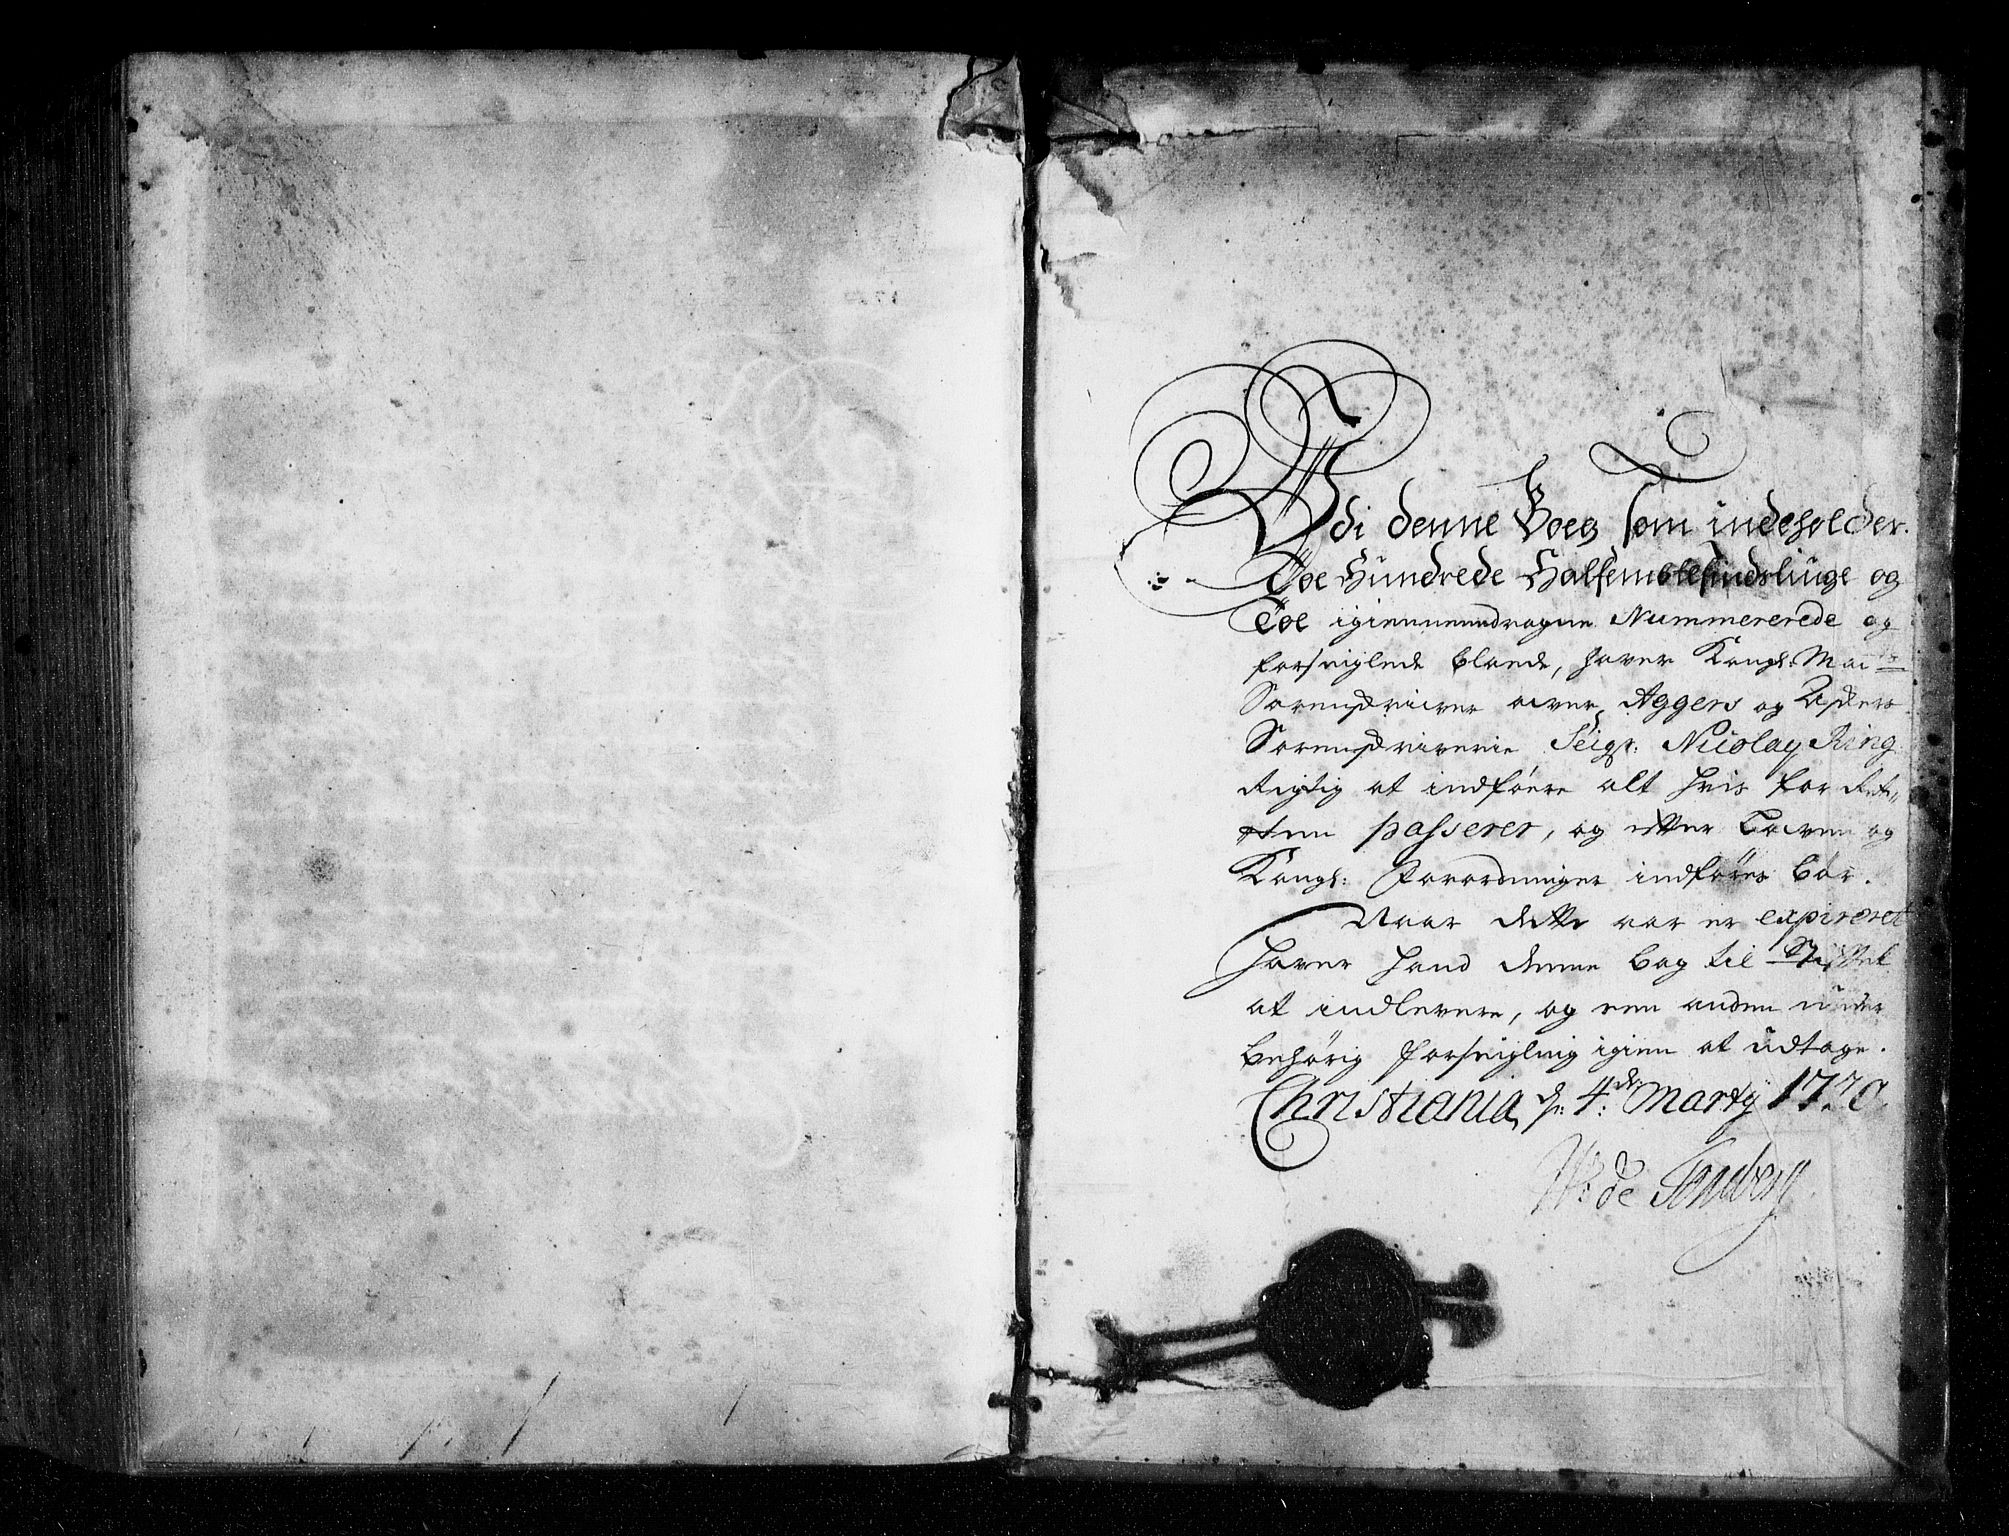 Udi denne Boeg som indeholder
Toe Hundrede Halfemtesindstiuge og
Toe igiennemdragne Nummererede og
forseiglede blade, haver Kongl: May:ts
Sorenskriver over Aggers og Askers
Sorenskriverie Seigr: Nicolay Ring
Rigtig at indføere alt hvis for Ret-
ten passerer, og efter Loven og
Kongl: Forordninger indføres bør.
Naar dette aar er expireret
haver hand denne bog til Stiftet
at indlevere, og een anden under
behørig forseigling igien at udtage.
Christiania d: 4de Marty 1720
W: de Tonsberg